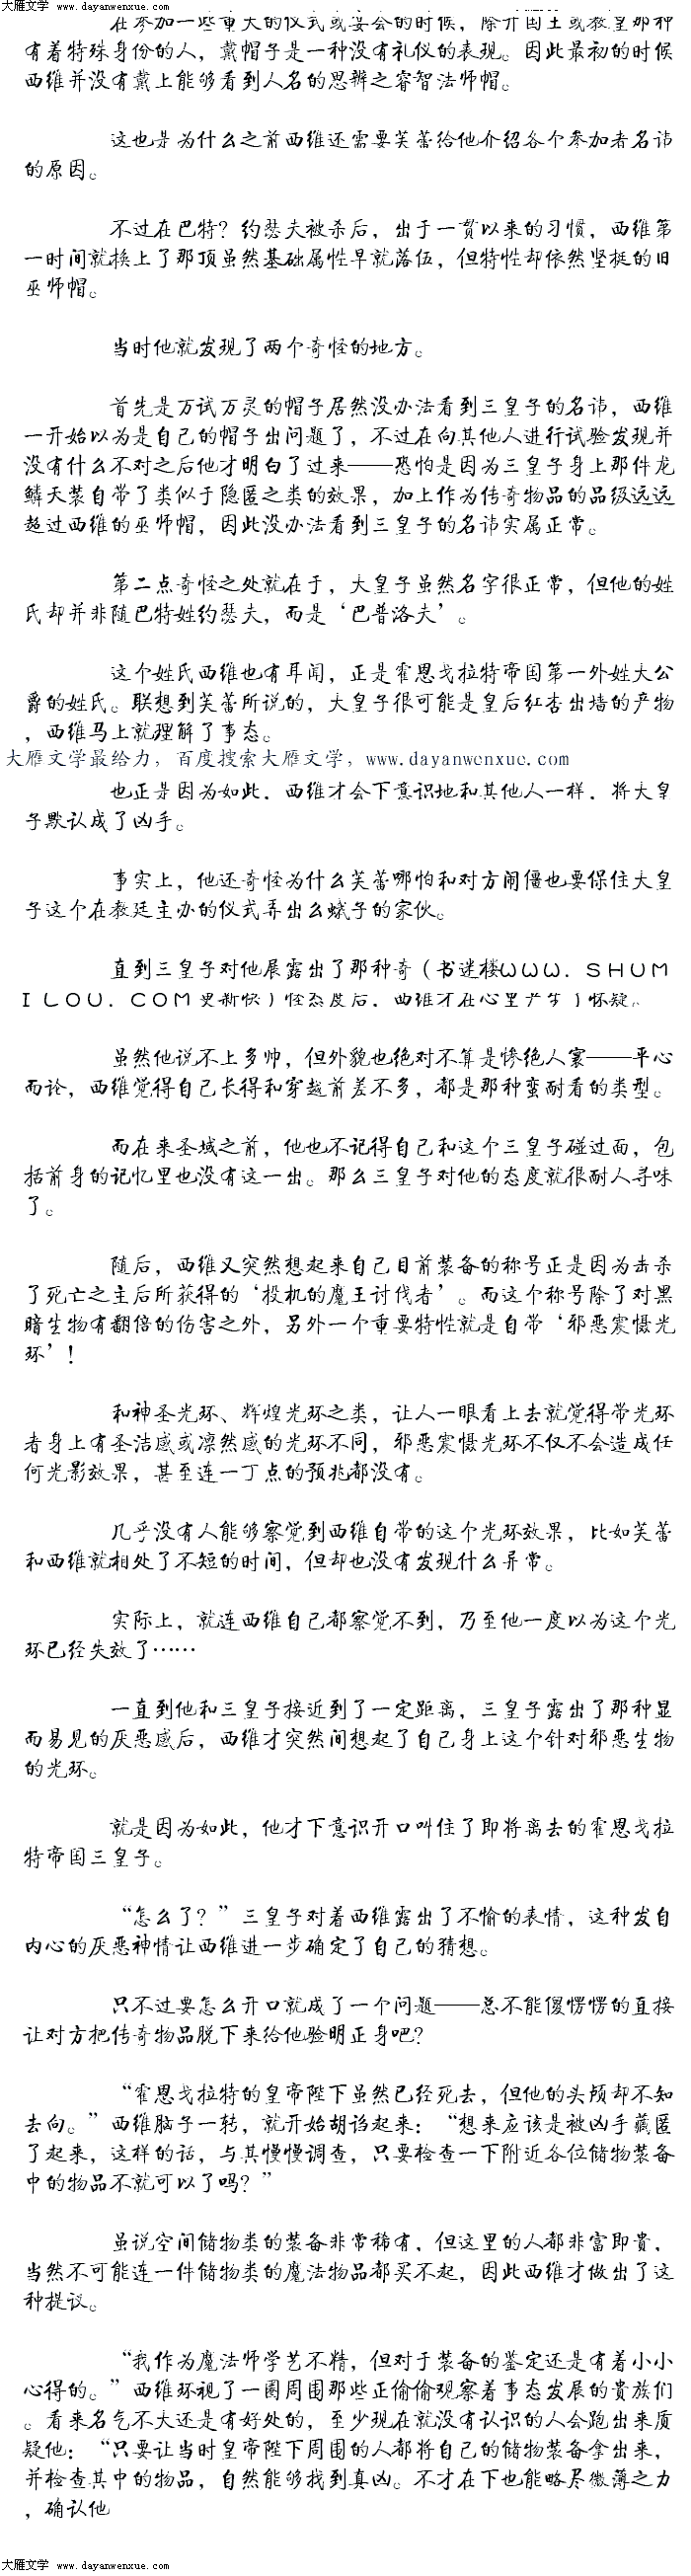 大雁文学 www.dayanwenxue.com
在参加一些重大的仪式或宴会的时候，除开国王或教皇那种
有着特殊身份的人，戴帽子是一种没有礼仪的表现。因此最初的时候
西维并没有戴上能够看到人名的思辨之睿智法师帽。
这也是为什么之前西维还需要芙蕾给他介绍各个参加者名讳
的原因。
不过在巴特？约瑟夫被杀后，出于一贯以来的习惯，西维第
一时间就换上了那顶虽然基础属性早就落伍，但特性却依然坚挺的旧
巫师帽。
当时他就发现了两个奇怪的地方。
首先是万试万灵的帽子居然没办法看到三皇子的名讳，西维
一开始以为是自己的帽子出问题了，不过在向其他人进行试验发现并
没有什么不对之后他才明白了过来——恐怕是因为三皇子身上那件龙
鳞天装自带了类似于隐匿之类的效果，加上作为传奇物品的品级远远
超过西维的巫师帽，因此没办法看到三皇子的名讳实属正常。
第二点奇怪之处就在于，大皇子虽然名字很正常，但他的姓
氏却并非随巴特姓约瑟夫，而是‘巴普洛夫’。
这个姓氏西维也有耳闻，正是霍恩戈拉特帝国第一外姓大公
爵的姓氏。联想到芙蕾所说的，大皇子很可能是皇后红杏出墙的产物
，西维马上就理解了事态。
大雁文学最给力，百度搜索大雁文学，www.dayanwenxue.com
也正是因为如此，西维才会下意识地和其他人一样，将大皇
子默认成了凶手。
事实上，他还奇怪为什么芙蕾哪怕和对方闹僵也要保住大皇
子这个在教廷主办的仪式弄出么蛾子的家伙。
直到三皇子对他展露出了那种奇（书迷楼ＷＷＷ．ＳＨＵＭ
ＩＬＯＵ．ＣＯＭ更新快）怪态度后，西维才在心里产生了怀疑。
虽然他说不上多帅，但外貌也绝对不算是惨绝人寰——平心
而论，西维觉得自己长得和穿越前差不多，都是那种蛮耐看的类型。
而在来圣域之前，他也不记得自己和这个三皇子碰过面，包
括前身的记忆里也没有这一出。那么三皇子对他的态度就很耐人寻味
了。
随后，西维又突然想起来自己目前装备的称号正是因为击杀
了死亡之主后所获得的‘投机的魔王讨伐者’。而这个称号除了对黑
暗生物有翻倍的伤害之外，另外一个重要特性就是自带‘邪恶震慑光
环’！
和神圣光环、辉煌光环之类，让人一眼看上去就觉得带光环
者身上有圣洁感或凛然感的光环不同，邪恶震慑光环不仅不会造成任
何光影效果，甚至连一丁点的预兆都没有。
几乎没有人能够察觉到西维自带的这个光环效果，比如芙蕾
和西维就相处了不短的时间，但却也没有发现什么异常。
实际上，就连西维自己都察觉不到，乃至他一度以为这个光
环已经失效了……
一直到他和三皇子接近到了一定距离，三皇子露出了那种显
而易见的厌恶感后，西维才突然间想起了自己身上这个针对邪恶生物
的光环。
就是因为如此，他才下意识开口叫住了即将离去的霍恩戈拉
特帝国三皇子。
“怎么了？”三皇子对着西维露出了不愉的表情，这种发自
内心的厌恶神情让西维进一步确定了自己的猜想。
只不过要怎么开口就成了一个问题——总不能傻愣愣的直接
让对方把传奇物品脱下来给他验明正身吧？
“霍恩戈拉特的皇帝陛下虽然已经死去，但他的头颅却不知
去向。”西维脑子一转，就开始胡诌起来：“想来应该是被凶手藏匿
了起来，这样的话，与其慢慢调查，只要检查一下附近各位储物装备
中的物品不就可以了吗？”
虽说空间储物类的装备非常稀有，但这里的人都非富即贵，
当然不可能连一件储物类的魔法物品都买不起，因此西维才做出了这
种提议。
“我作为魔法师学艺不精，但对于装备的鉴定还是有着小小
心得的。”西维环视了一圈周围那些正偷偷观察着事态发展的贵族们
。看来名气不大还是有好处的，至少现在就没有认识的人会跑出来质
疑他：“只要让当时皇帝陛下周围的人都将自己的储物装备拿出来，
并检查其中的物品，自然能够找到真凶。不才在下也能略尽微薄之力
，确认他
大雁文学 www.dayanwenxue.com